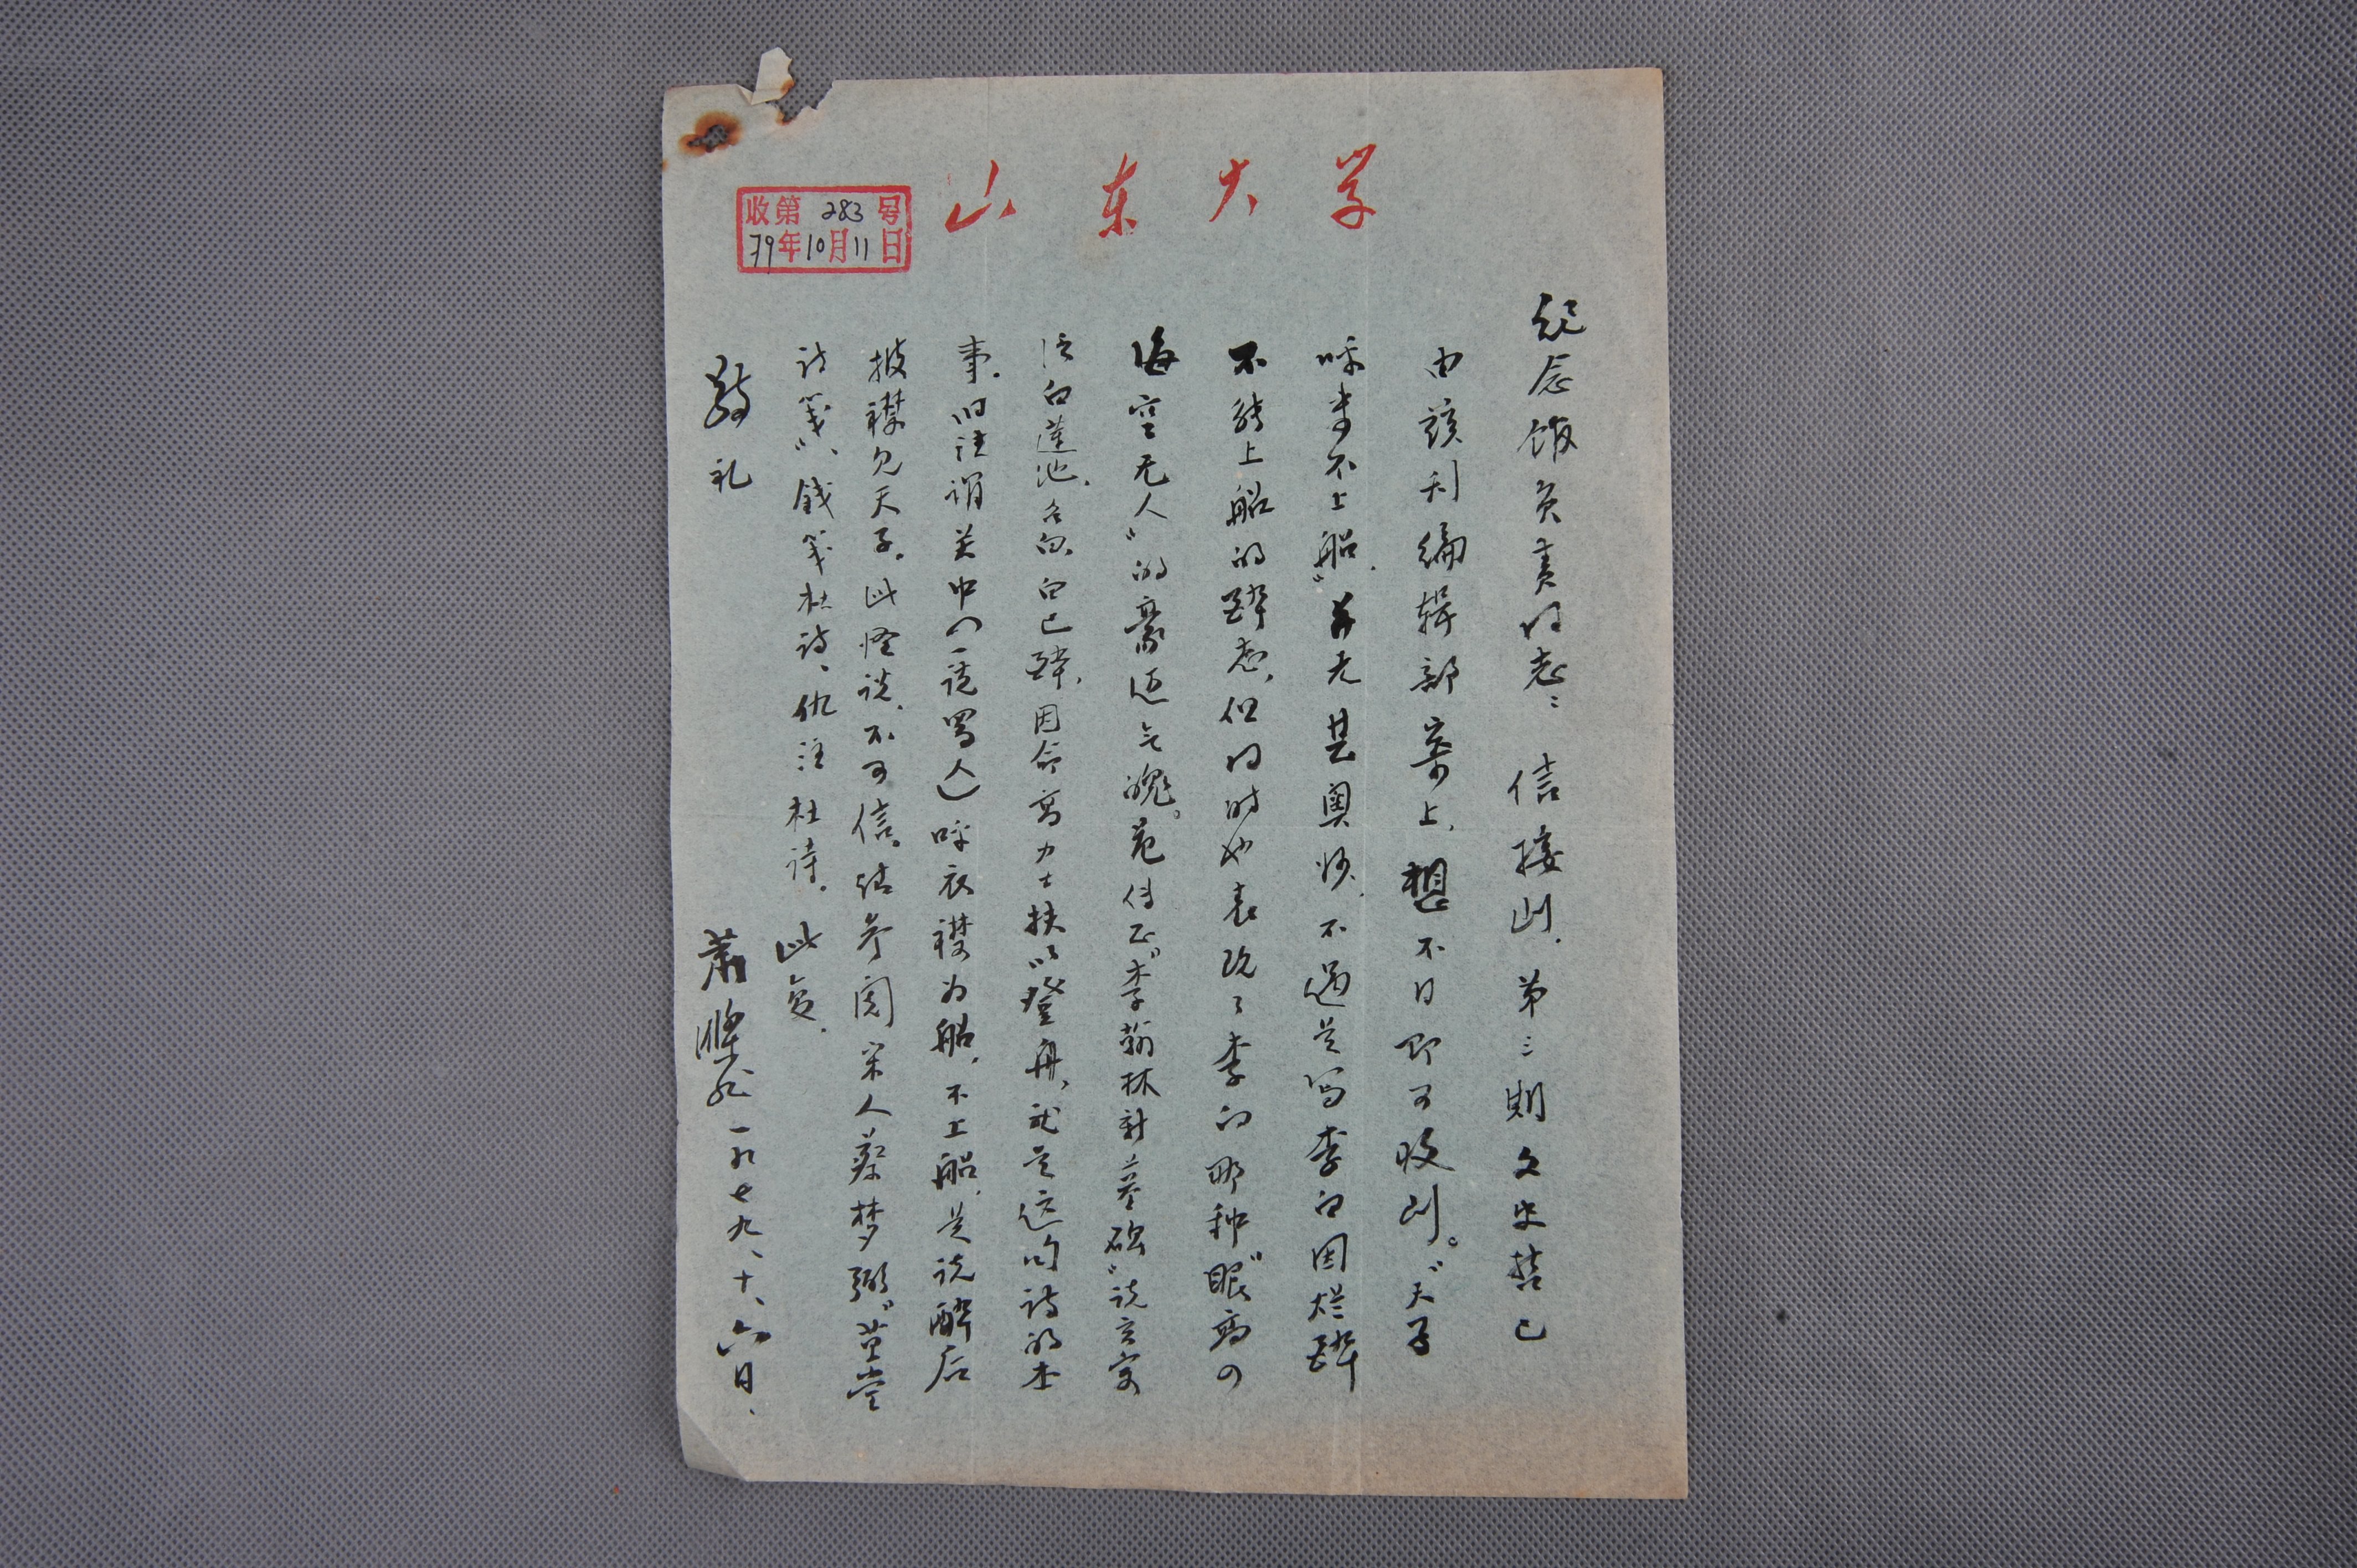 山东大学
收第283号
79年10月11日
纪念馆负责同志：信接到．第三期文史哲已
由该刊编辑部寄上，想不日即可收到。“天子
呼来不上船”，并无甚奥妙，不过是写李白因烂醉
不能上船的醉态，但同时也表现了李白那种“眼高四
海空无人”的豪迈气魄。范传正“李翰林新墓碑”说玄宗
泛白莲池，召白，白已醉，因命高力士扶以登舟，就是这句诗的本
事．旧注谓关中人（一说蜀人）呼衣襟为船，不上船，是说醉后
披襟见天子．此怪说，不可信。请参阅宋人蔡梦弼“草堂
诗笺”、钱笺杜诗、仇注杜诗．此复．
敬礼
萧涤非 一九七九、十、六日．